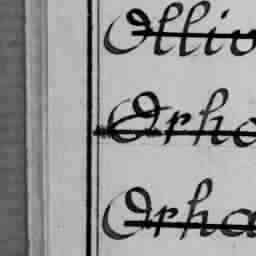 Ollio
Orha
Orha